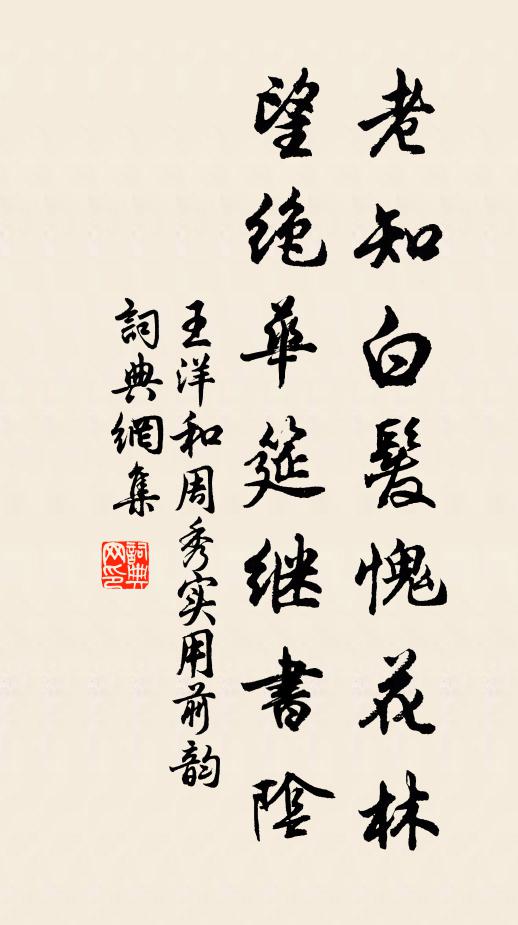 老知白髮愧花林
望絶華筵继書陰
王洋和周秀实用前韵
詞典網集
詞典网印